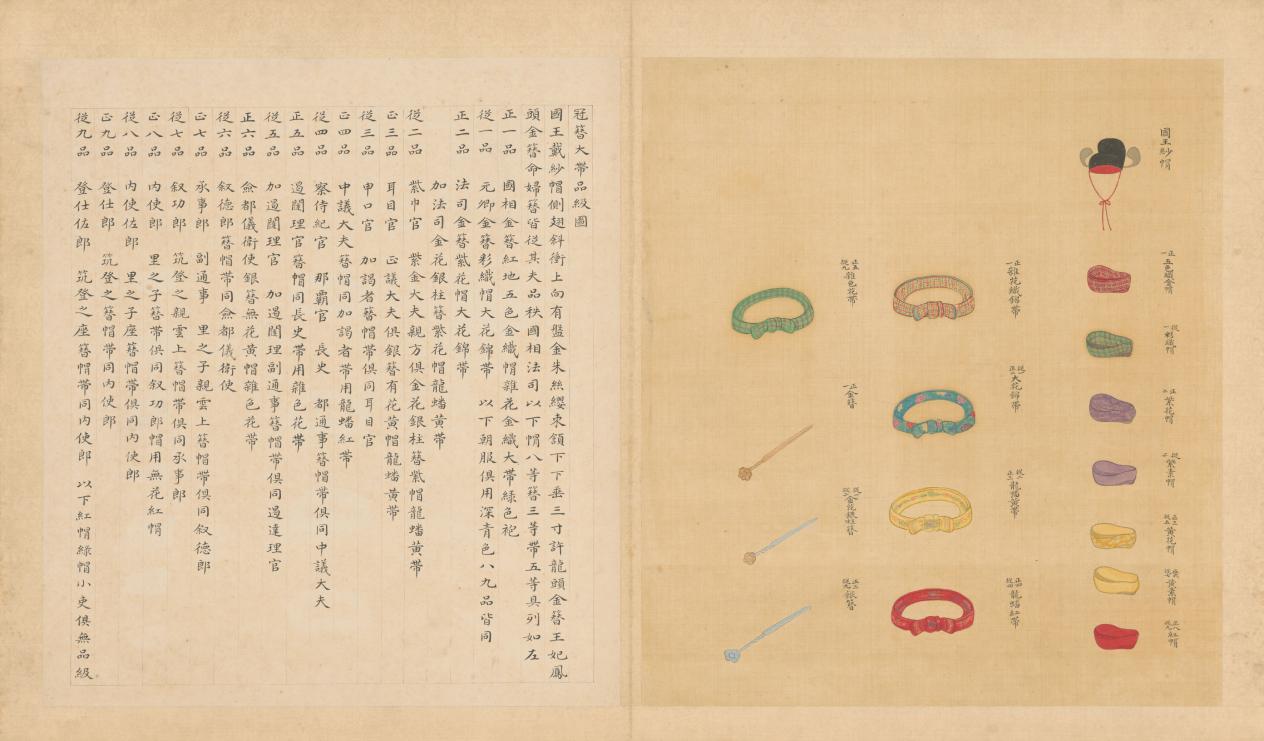 國王紗帽
正一 五色織金帽
從一 彩織帽
正二 紫花帽
從二 紫素帽
黃花帽
黃素帽
紅帽
正一 雜花織錦帶
大花錦帶
龍蟠黃帶
龍蟠紅帶
雜色花帶
一 金簪
金花銀柱簪
銀簪
冠簪大帶品級圖
國王戴紗帽側翅斜衝上向有盤金朱絲纓束頷下下垂三寸許龍頭金簪王妃鳳
頭金簪命婦簪皆從其夫品秩國相法司以下帽八等簪三等帶五等具列如左
正一品 國相金簪紅地五色金織帽雜花金織大帶綠色袍
從一品 元卿金簪彩織帽大花錦帶 以下朝服俱用深青色八九品皆同
正二品 法司金簪紫花帽大花錦帶
加法司金花銀柱簪紫花帽龍蟠黃帶
從二品 紫巾官 紫金大夫親方俱金花銀柱簪紫帽龍蟠黃帶
正三品 耳目官 正議大夫俱銀簪有花黃帽龍蟠黃帶
從三品 申口官 加謁者簪帽帶俱同耳目官
正四品 中議大夫簪帽同加謁者帶用龍蟠紅帶
從四品 察侍紀官 那霸官 長史 都通事簪帽帶俱同中議大夫
正五品 遏闥理官簪帽同長史帶用雜色花帶
從五品 加遏闥理官 加遏闥理副通事簪帽帶俱同遏達理官
正六品 僉都儀衛使銀簪無花黃帽雜色花帶
從六品 叙德郎簪帽帶同僉都儀衛使
正七品 承事郎 副通事 里之子親雲上簪帽帶俱同叙德郎
從七品 叙功郎 筑登之親雲上簪帽帶俱同承事郎
正八品 內使郎 里之子簪帶俱同叙功郎帽用無花紅帽
從八品 內使佐郎 里之子座簪帽帶俱同內使郎
正九品 登仕郎 筑登之簪帽帶同內使郎
從九品 登仕佐郎 筑登之座簪帽帶同內使郎 以下紅帽綠帽小吏俱無品級